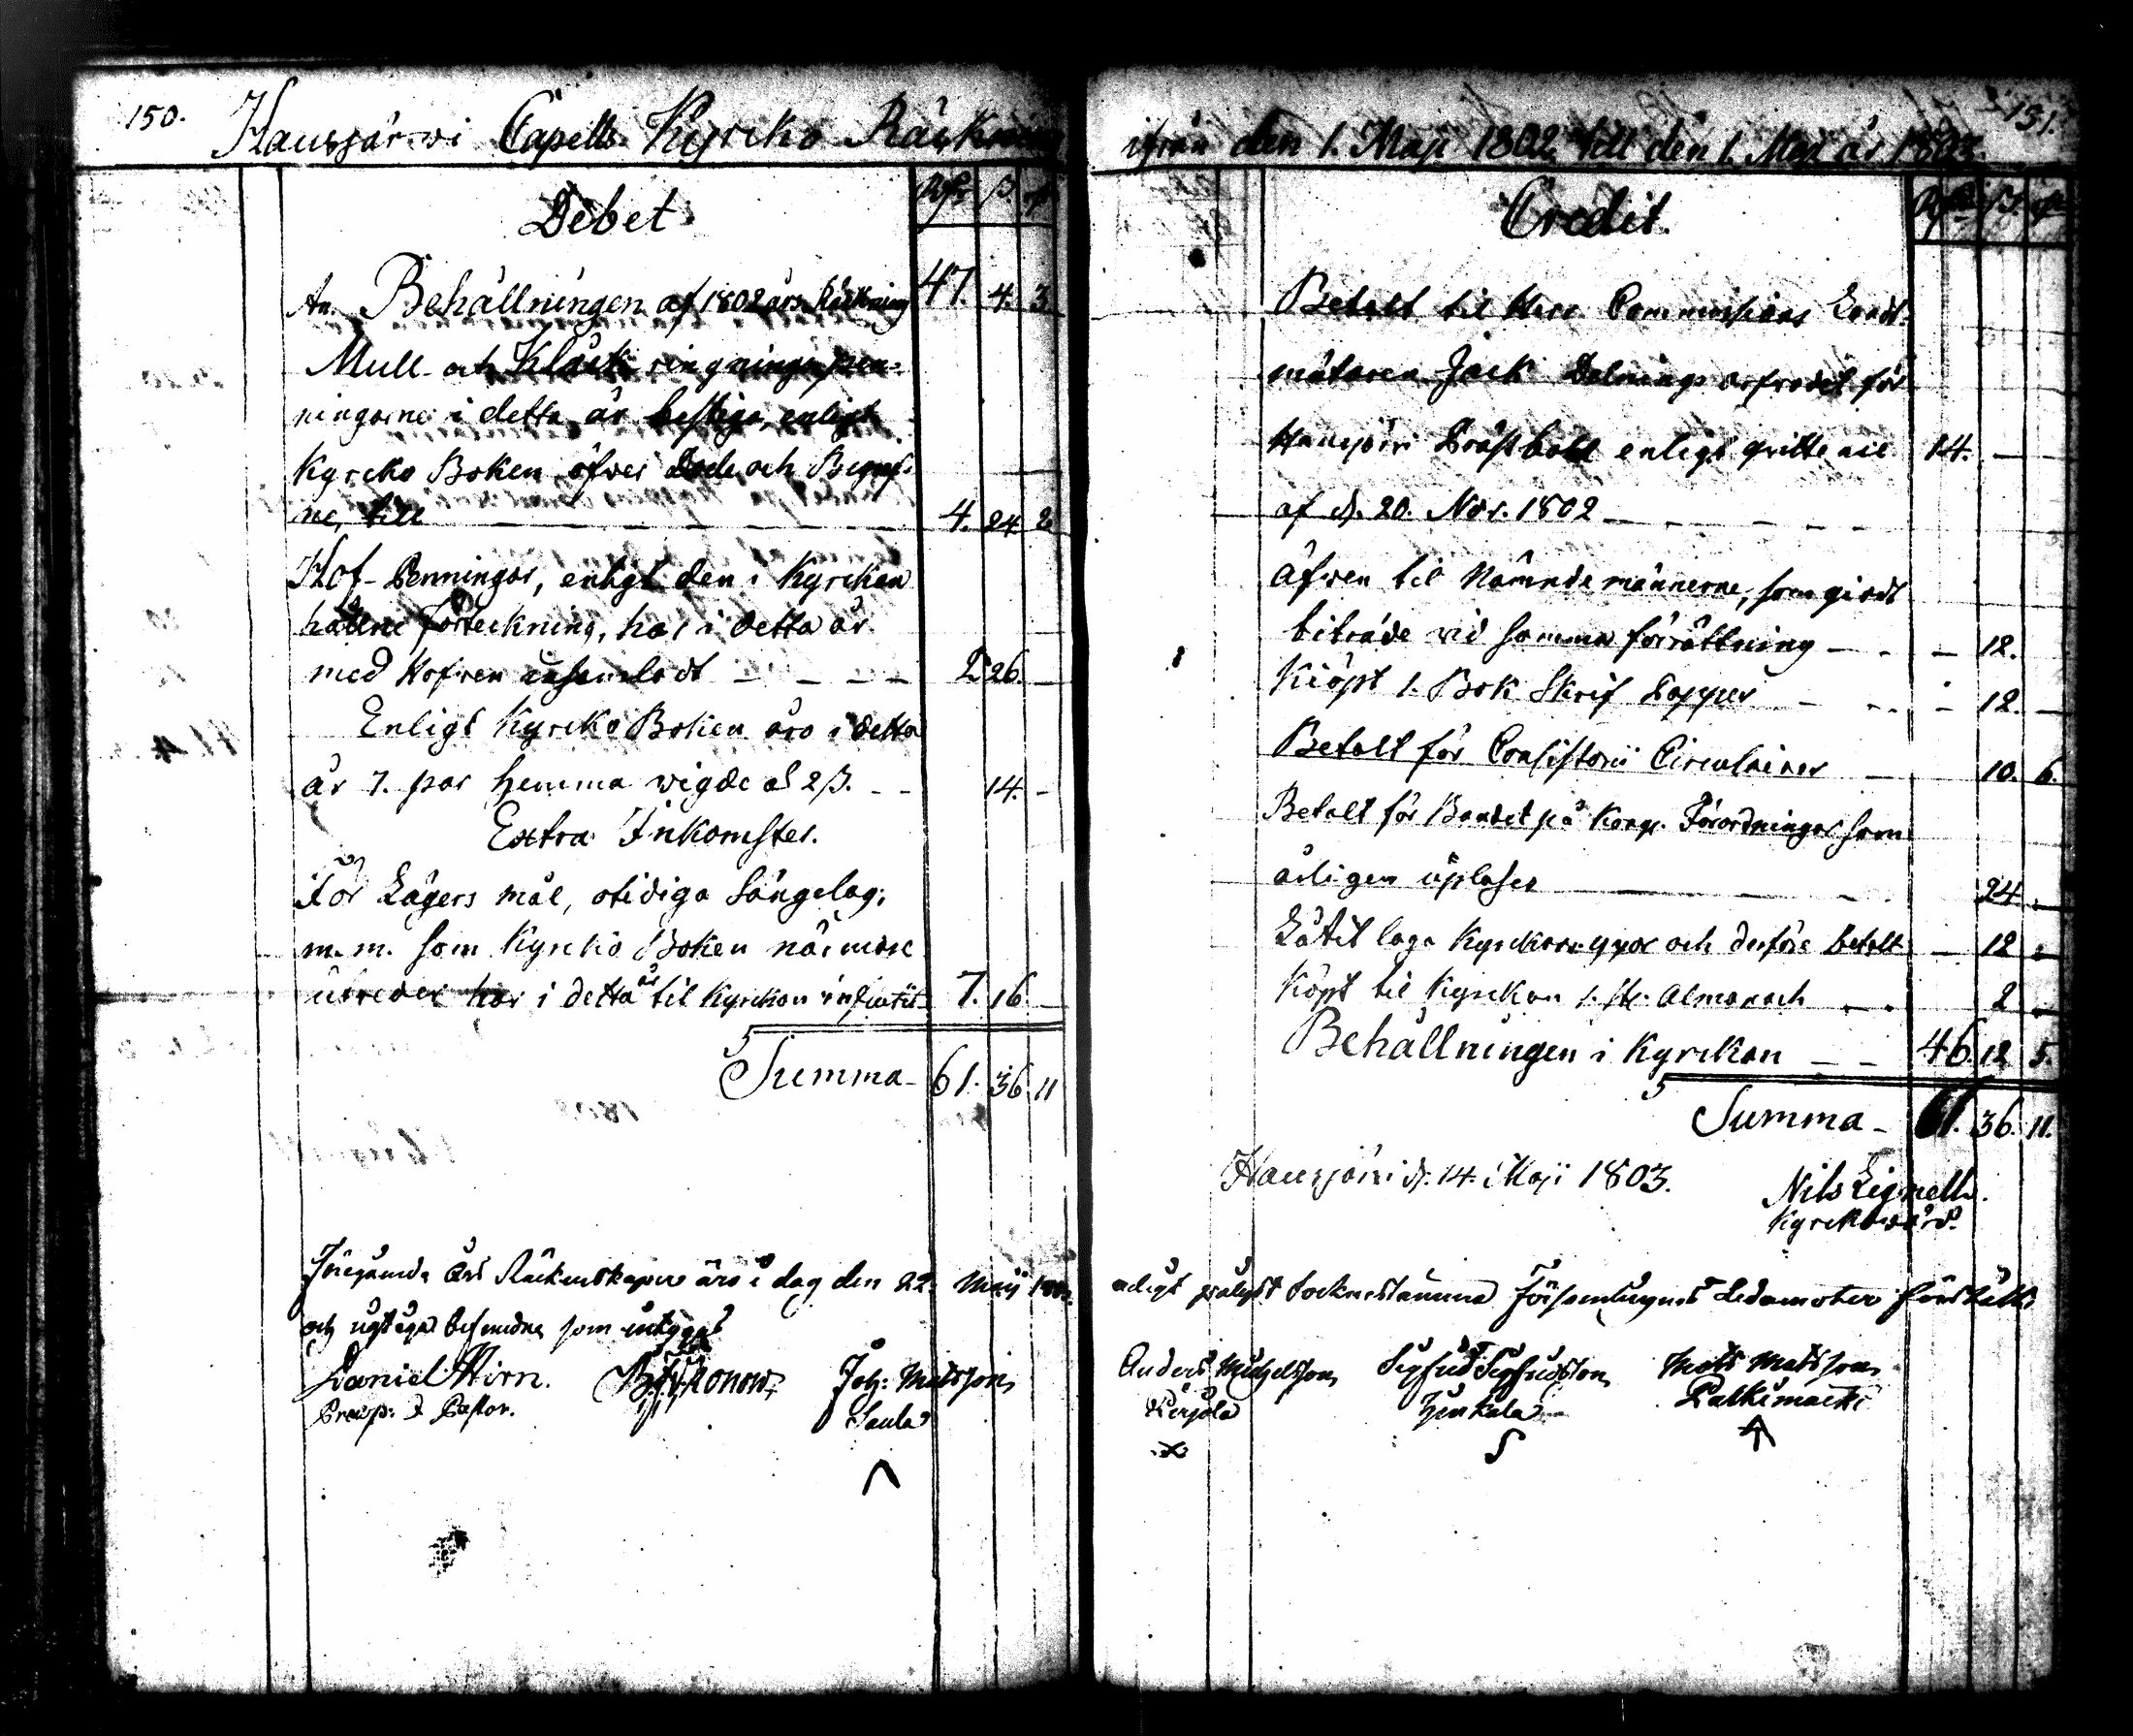 150.
Hausjärwi Capells Kyrcko Räkning
Debet
An. Behållningen af 1802 års Räkning 47. 4. 3
Mull- och Klåck ringnings pen-
ningarne i detta år bestiga, enligt
Kyrcko Boken öfver Döde och Begraf-
ne, till 4. 24 2
Hof-Penningar, enligt den i Kyrckan
hållne förteckning, har i detta år
med Hofwen insamladt 2 26. —
Enligt Kyrcko Boken äro i detta
år 7. par hemma wigde à 2 ß. 14. -
Extra Inkomster.
För Lägersmål, otidiga Sängelag,
m. m. som Kyrcko Boken närmare
utreder har i detta år til Kyrckan influtit 7. 16. —
Summa - 61. 36. 11
151.
ifrån den 1. Maji 1802 till den 1. Maji år 1803.
Credit.
Betalt til Herr Commissions Landt-
mätaren Jack Delnings arfvodet för
Hausjärvi Präst bohl enligt qvittence 14. —
af d. 20. Nov. 1802
Äfwen til Nämndemännerne, som giordt
biträde vid samma förrättning — 12.
Kiöpt 1. Bok Skrif Papper — 12. —
Betalt för Consistorii Circulairer 10. 6.
Betalt för Bandet på Kongl. Förordningar som
årligen upläses 24
Låtit laga och derföre betalt — 12
Köpt til Kyrckan 1. st. Almanach 2
Behållningen i Kyrckan 46. 12 5.
Summa - 61. 36. 11.
Hausjärvi d. 14. Maji 1803.
Nils Lignell.
Kyrckowärd.
Föregående Års Räkenskaper äro i dag den 22. Maij
Socknestämma Församlingens Ledamoter
och befundne som intygas
Daniel Hirn.
Præp: & Pastor.
Joh: Matsson
Saula
Anders Michelsson
Sigfrid Sigfridsson
Mats Matsson